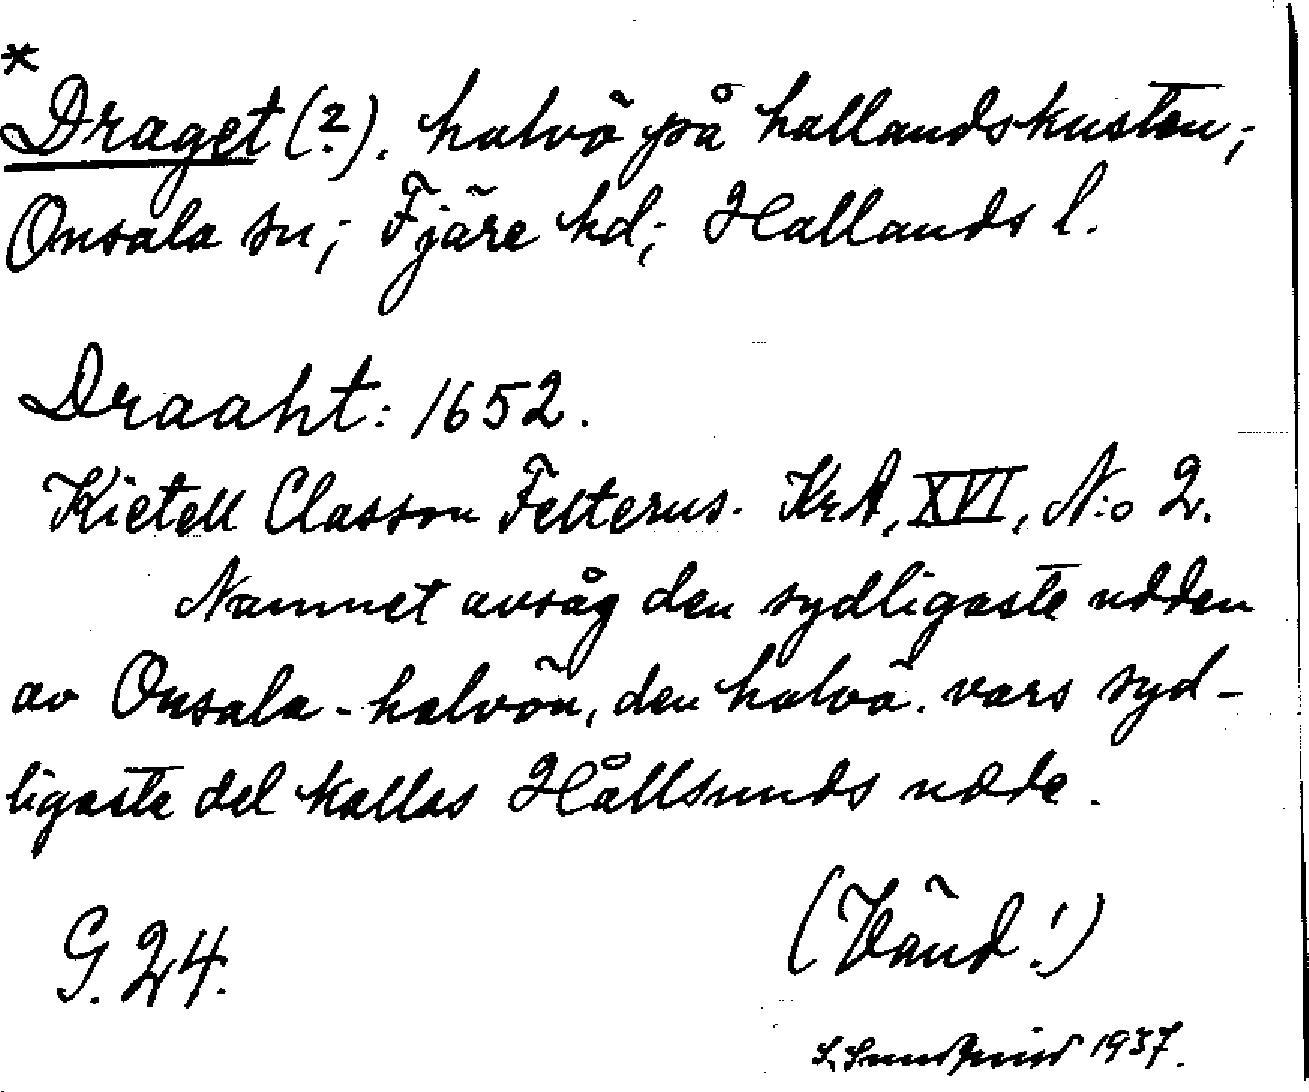 *
Draget (?). halvö på hallandskusten;
Onsala sn; Fjäre hd; Hallands l.
Draaht: 1652.
Kietell Classon Felterus. KrA, XVI, N:o 2.
Namnet avsåg den sydligaste udden
av Onsala-halvön, den halvö. vars syd-
ligaste del kallas Hållsunds udde.
(Vänd!)
G. 24.
1937.